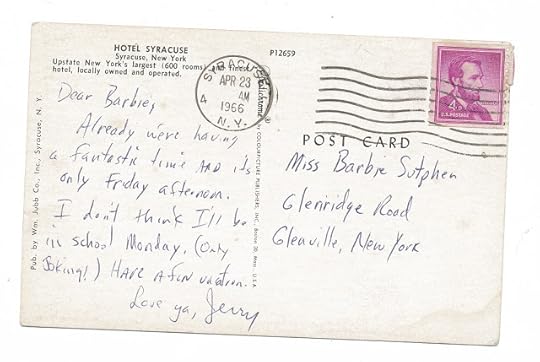 HOTEL SYRACUSE
Syracuse, New York
Upstate New York's largest (600 rooms) and finest
hotel, locally owned and operated.
P12659
SYRACUSE
APR 23
AM
1966
N.Y.
4
4¢
U.S. POSTAGE
POST CARD
Dear Barbie,
Already we're having
a fantastic time AND its
only Friday afternoon.
I don't think I'll be
in school Monday, (Only
Joking!) HAVE A fun vacation.
Love ya, Jerry
Miss Barbie Sutphen
Glenridge Road
Glenville, New York
Pub. by Wm. Jubb Co., Inc., Syracuse, N. Y.
BY COLOURPICTURE PUBLISHERS, INC., Boston 30, Mass., U.S.A.